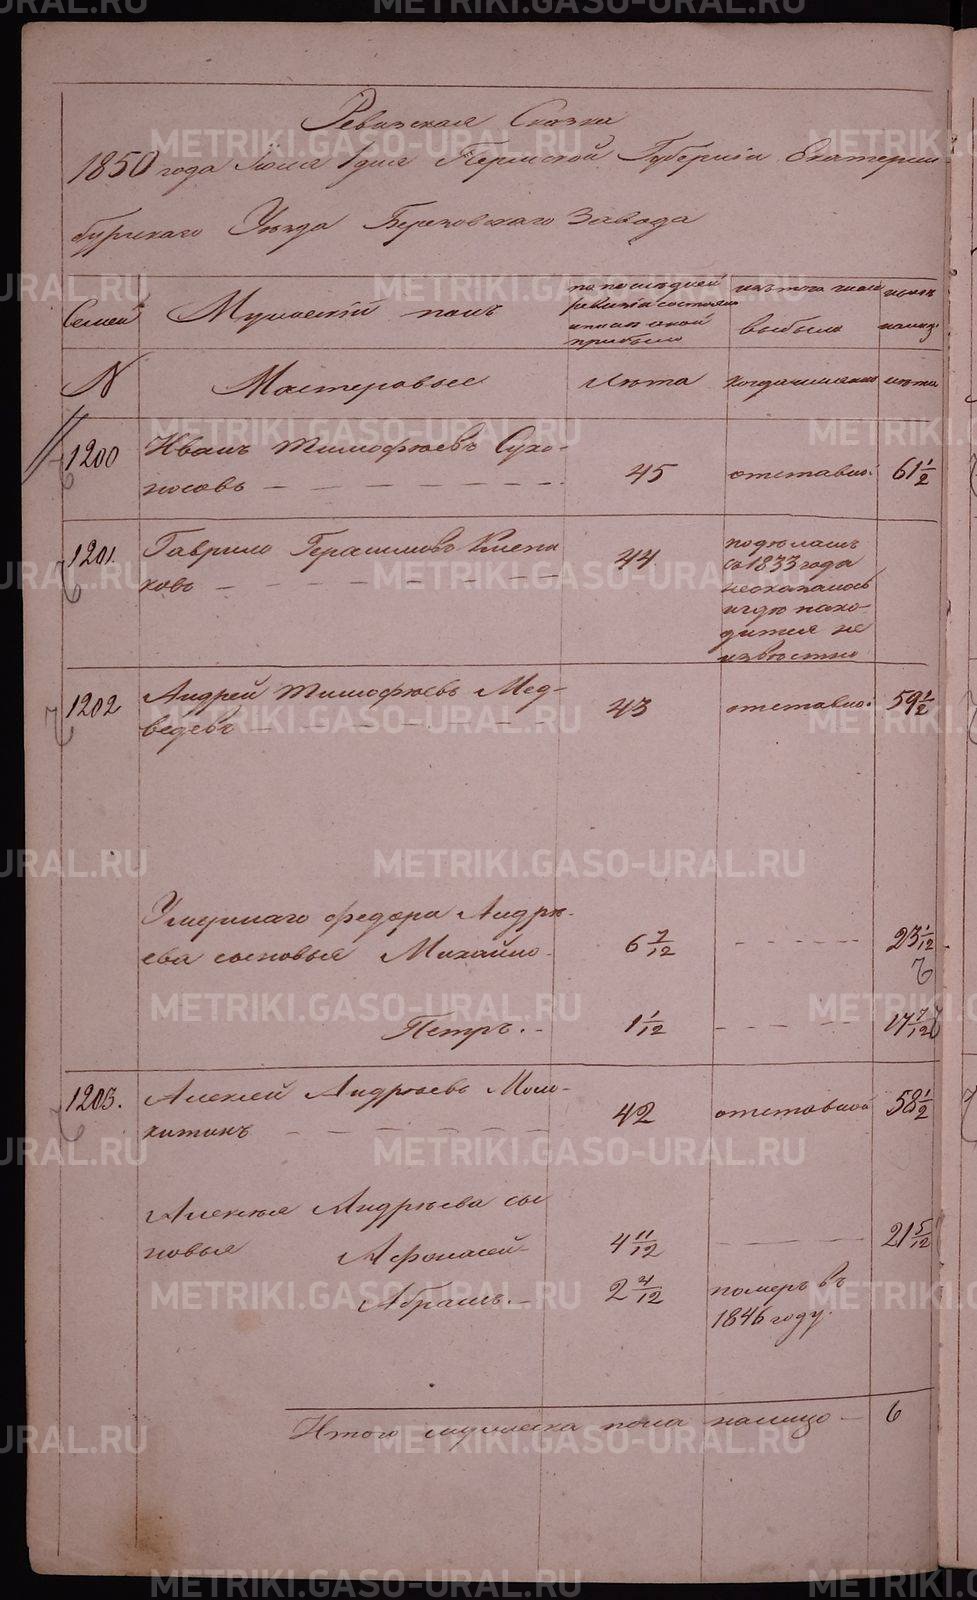 Ревизская Сказка
1850 года Июля 1 дня Пермской Губернiи Екатерин
бургскаго Уѣзда Березовскаго Завода
Семей Мужескiй полъ по последней изъ того числа нынѣ
ревизiи состояло
прибыло выбыло налицо
N Мастеровые Лѣта когда именно лѣта
1200 Иванъ Тимофѣевъ Сухо-
носовъ 45 отставной 61 1/2
1201. Гаврило Герасимовъ 44 подѣламъ
ковъ со 1833 года
неоказалось
и гдѣ нахо-
дится не
извѣстно
1202 Андрей Тимофѣевъ Мед-
ведевъ 43 отставной 59 1/2
Умершаго Федора Андрѣ-
ева сыновья Михайло 6 7/12 23 1/12
Петръ. 1 1/12 17 7/12
1203. Алексей Андрѣевъ Моло-
китинъ 42 отставной 58 1/2
Алексѣя Андрѣева сы
новья Афонасей 4 11/12 21 5/12
Абрамъ. 2 4/12 померъ въ
1846 году.
Итого мужеска пола налицо 6
METRIKI.GASO-URAL.RU